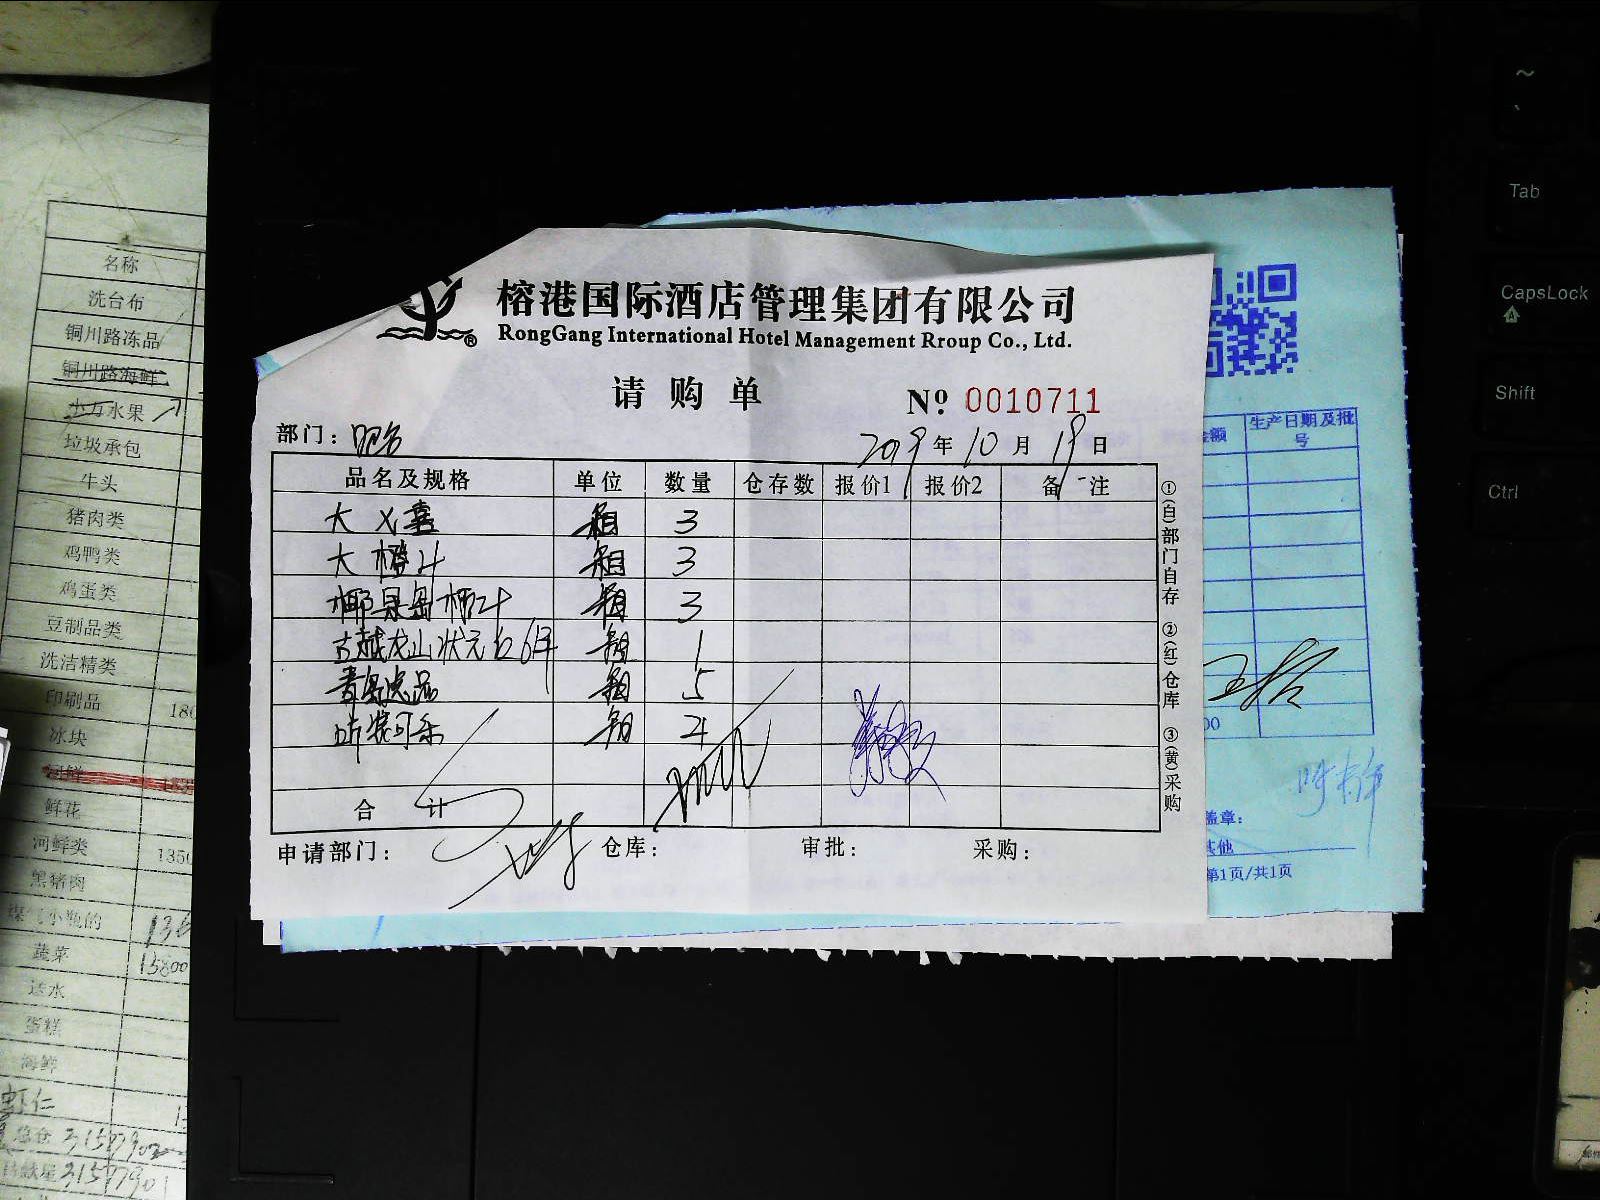 榕港国际酒店管理集团有限公司
®
RongGang International Hotel Management Rroup Co., Ltd.
请购单
Nº 0010711
部门: 吧台
2019年10月19日
品名及规格 单位 数量 仓存数 报价1 报价2 备注
大 箱 3
大橙汁 箱 3
椰果岛椰汁 箱 3
古越龙山状元红6年 箱 1
青岛 箱 5
听装可乐 箱 4
合计
申请部门: 仓库: 审批: 采购:
①(白)部门自存 ②(红)仓库 ③(黄)采购
名称
洗台布
铜川路冻品
铜川路海鲜
水果
垃圾承包
牛头
猪肉类
鸡鸭类
鸡蛋类
豆制品类
洗洁精类
印刷品 180
冰块
鲜花
河鲜类 1350
黑猪肉
煤气小瓶的 136
蔬菜 15800
送水
蛋糕
海鲜
虾仁
金额 生产日期及批号
00
盖章:
其他
第1页/共1页
~
Tab
CapsLock
Shift
Ctrl